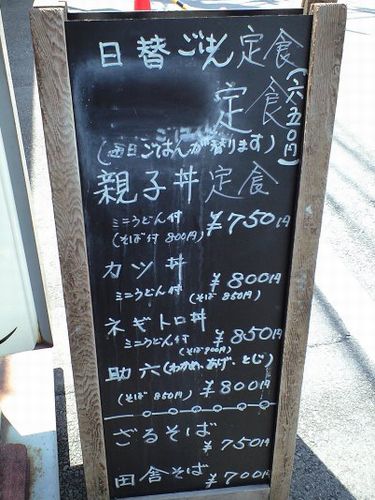 日替ごはん定食
定食(六五〇円)
ごはん
(毎日ごはんが替ります)
親子丼定食
ミニうどん付 ¥750円
(そば付 800円)
カツ丼
ミニうどん付 ¥800円
(そば 850円)
ネギトロ丼
ミニうどん付 ¥850円
(そば900円)
助六(わかめ、あげ、とじ)
(そば 850円) ¥800円
ざるそば
¥750円
田舎そば ¥700円